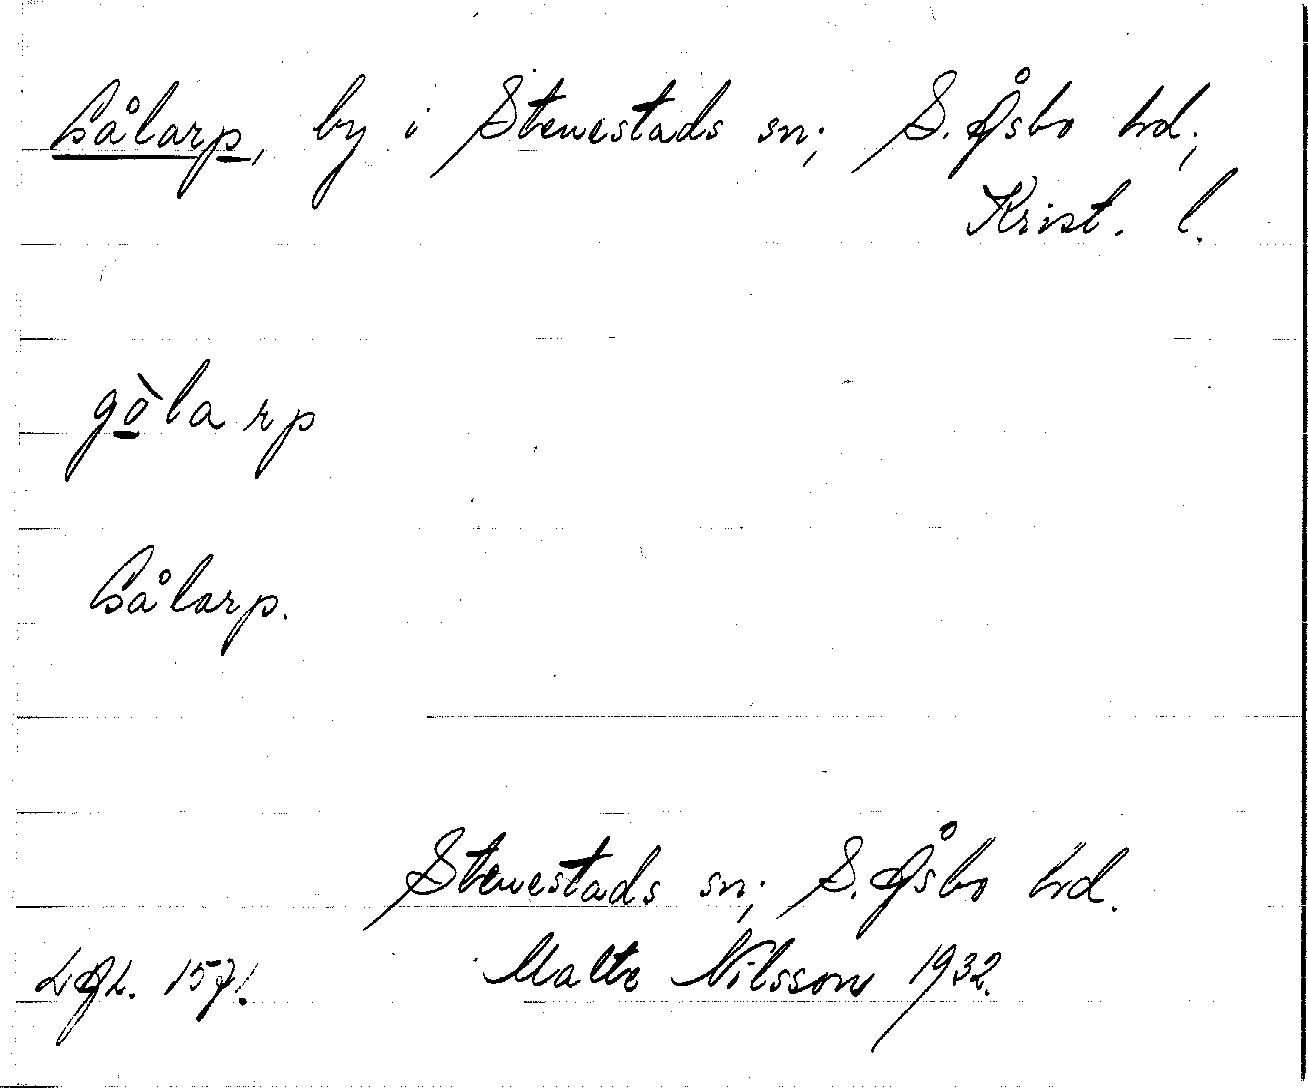 Gålarp, by i Stenestads sn; S. Åsbo hd;
Krist. l.
gòlarp
Gålarp.
Stenestads sn; S. Åsbo hd.
Malte Nilsson 1932.